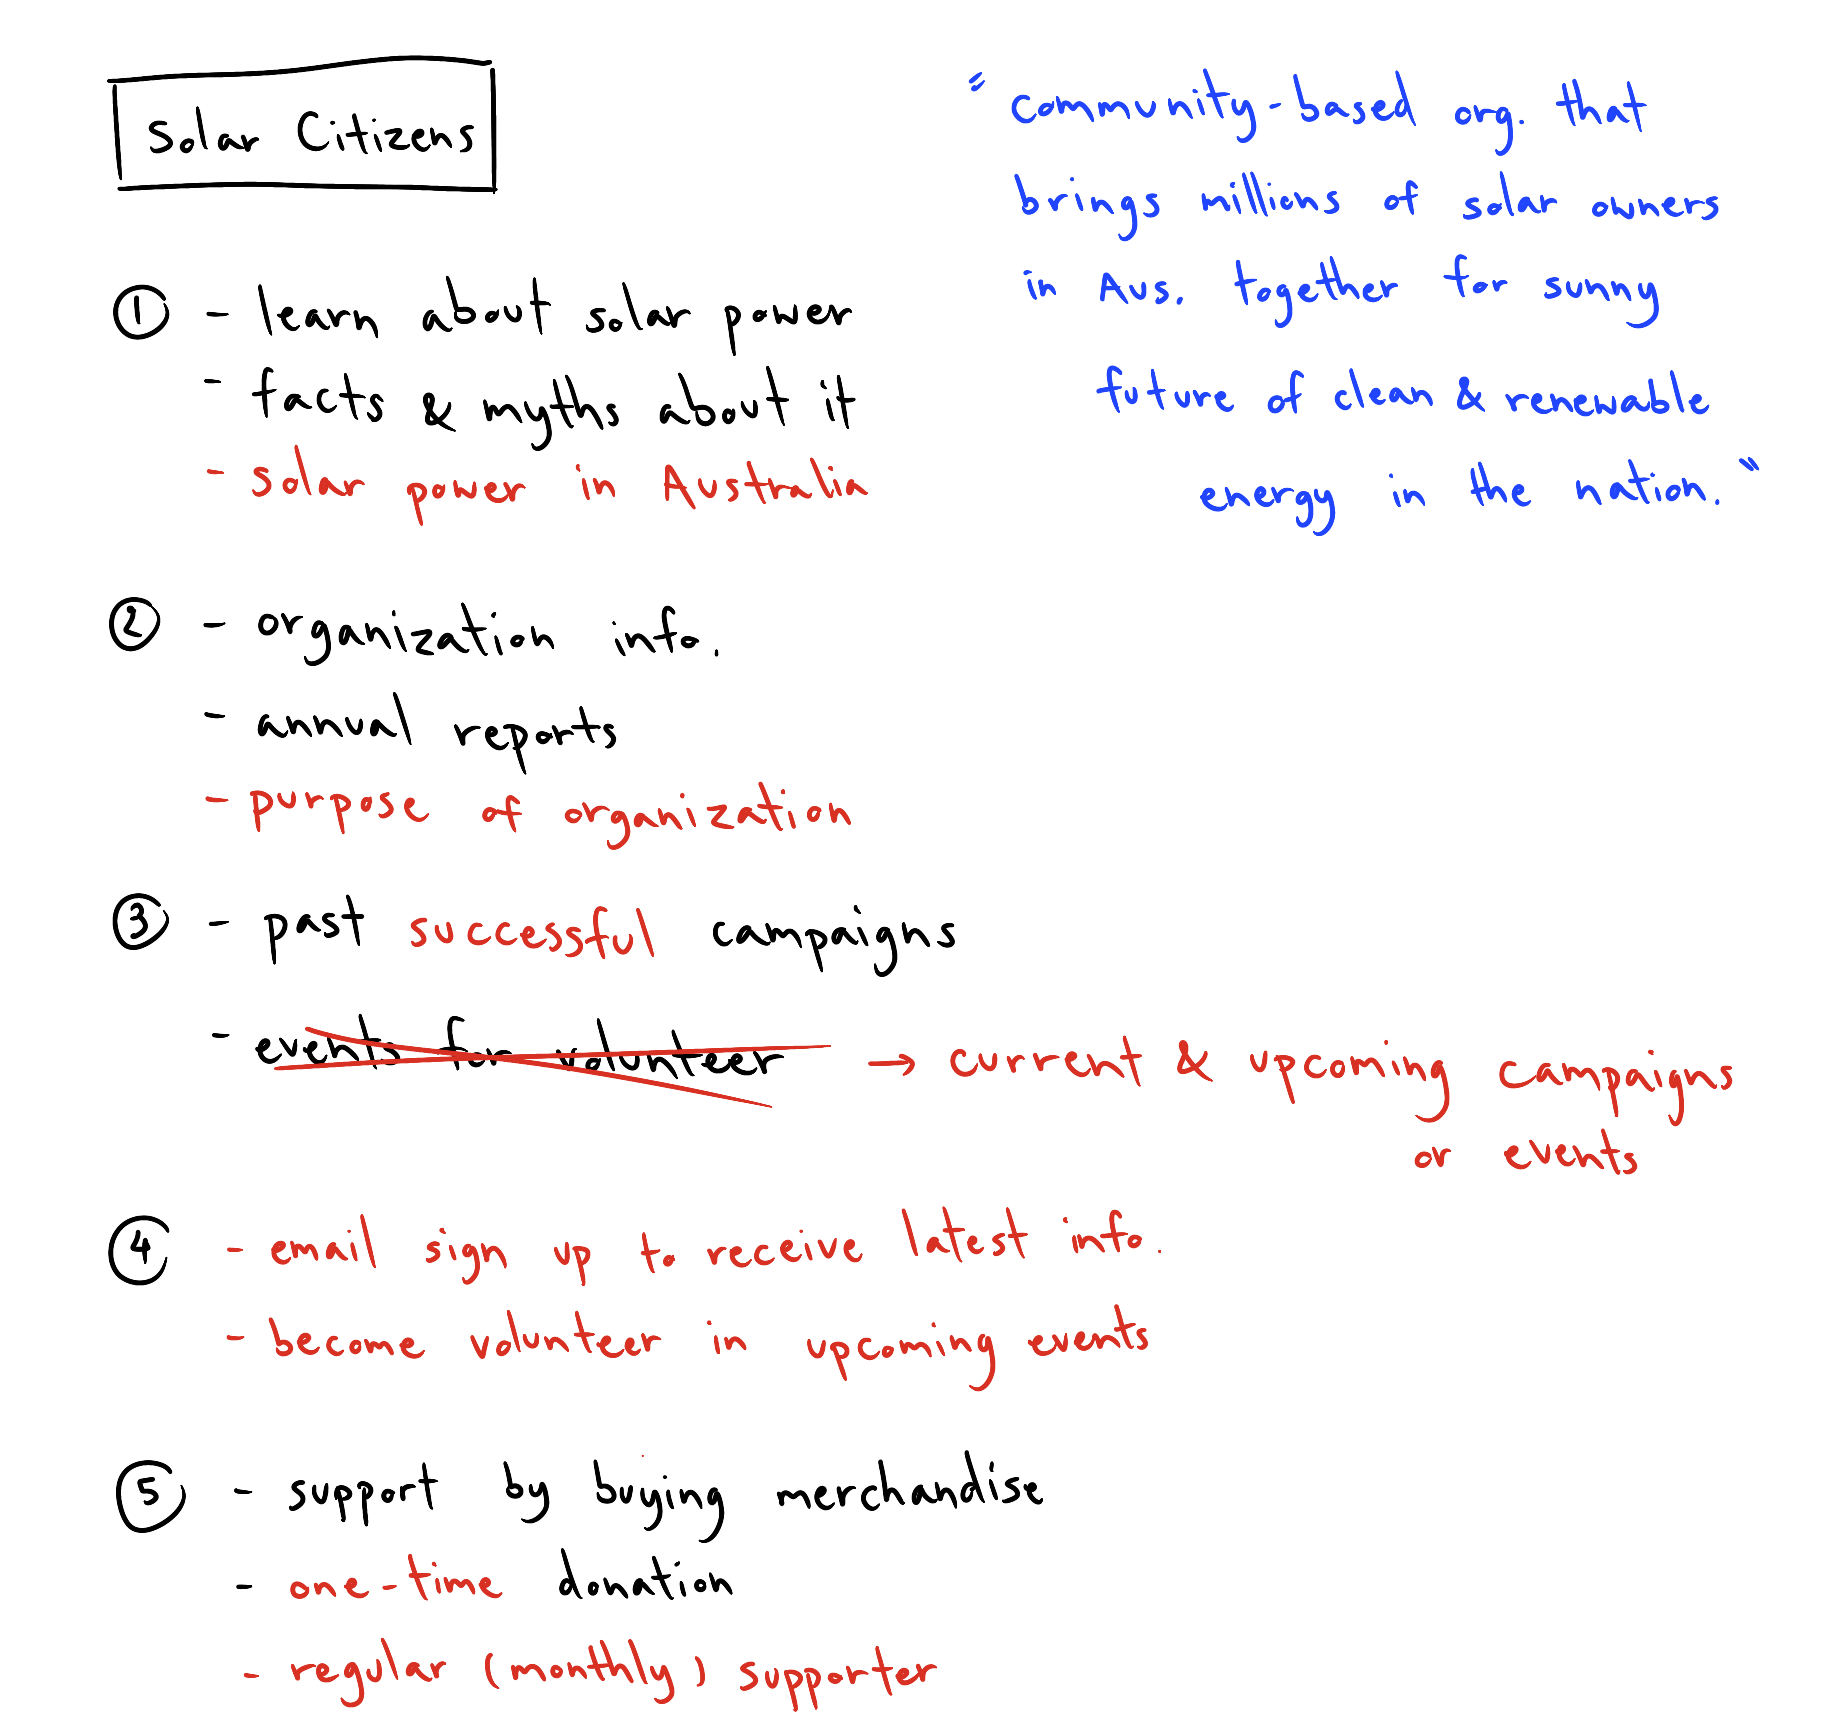 Solar Citizens
"community-based org. that
brings millions of solar owners
in Aus. together for sunny
future of clean & renewable
energy in the nation."
① - learn about solar power
- facts & myths about it
- solar power in Australia
② - organization info.
- annual reports
- purpose of organization
③ - past successful campaigns
- events for volunteer → current & upcoming campaigns
or events
④ - email sign up to receive latest info.
- become volunteer in upcoming events
⑤ - support by buying merchandise
- one-time donation
- regular (monthly) supporter